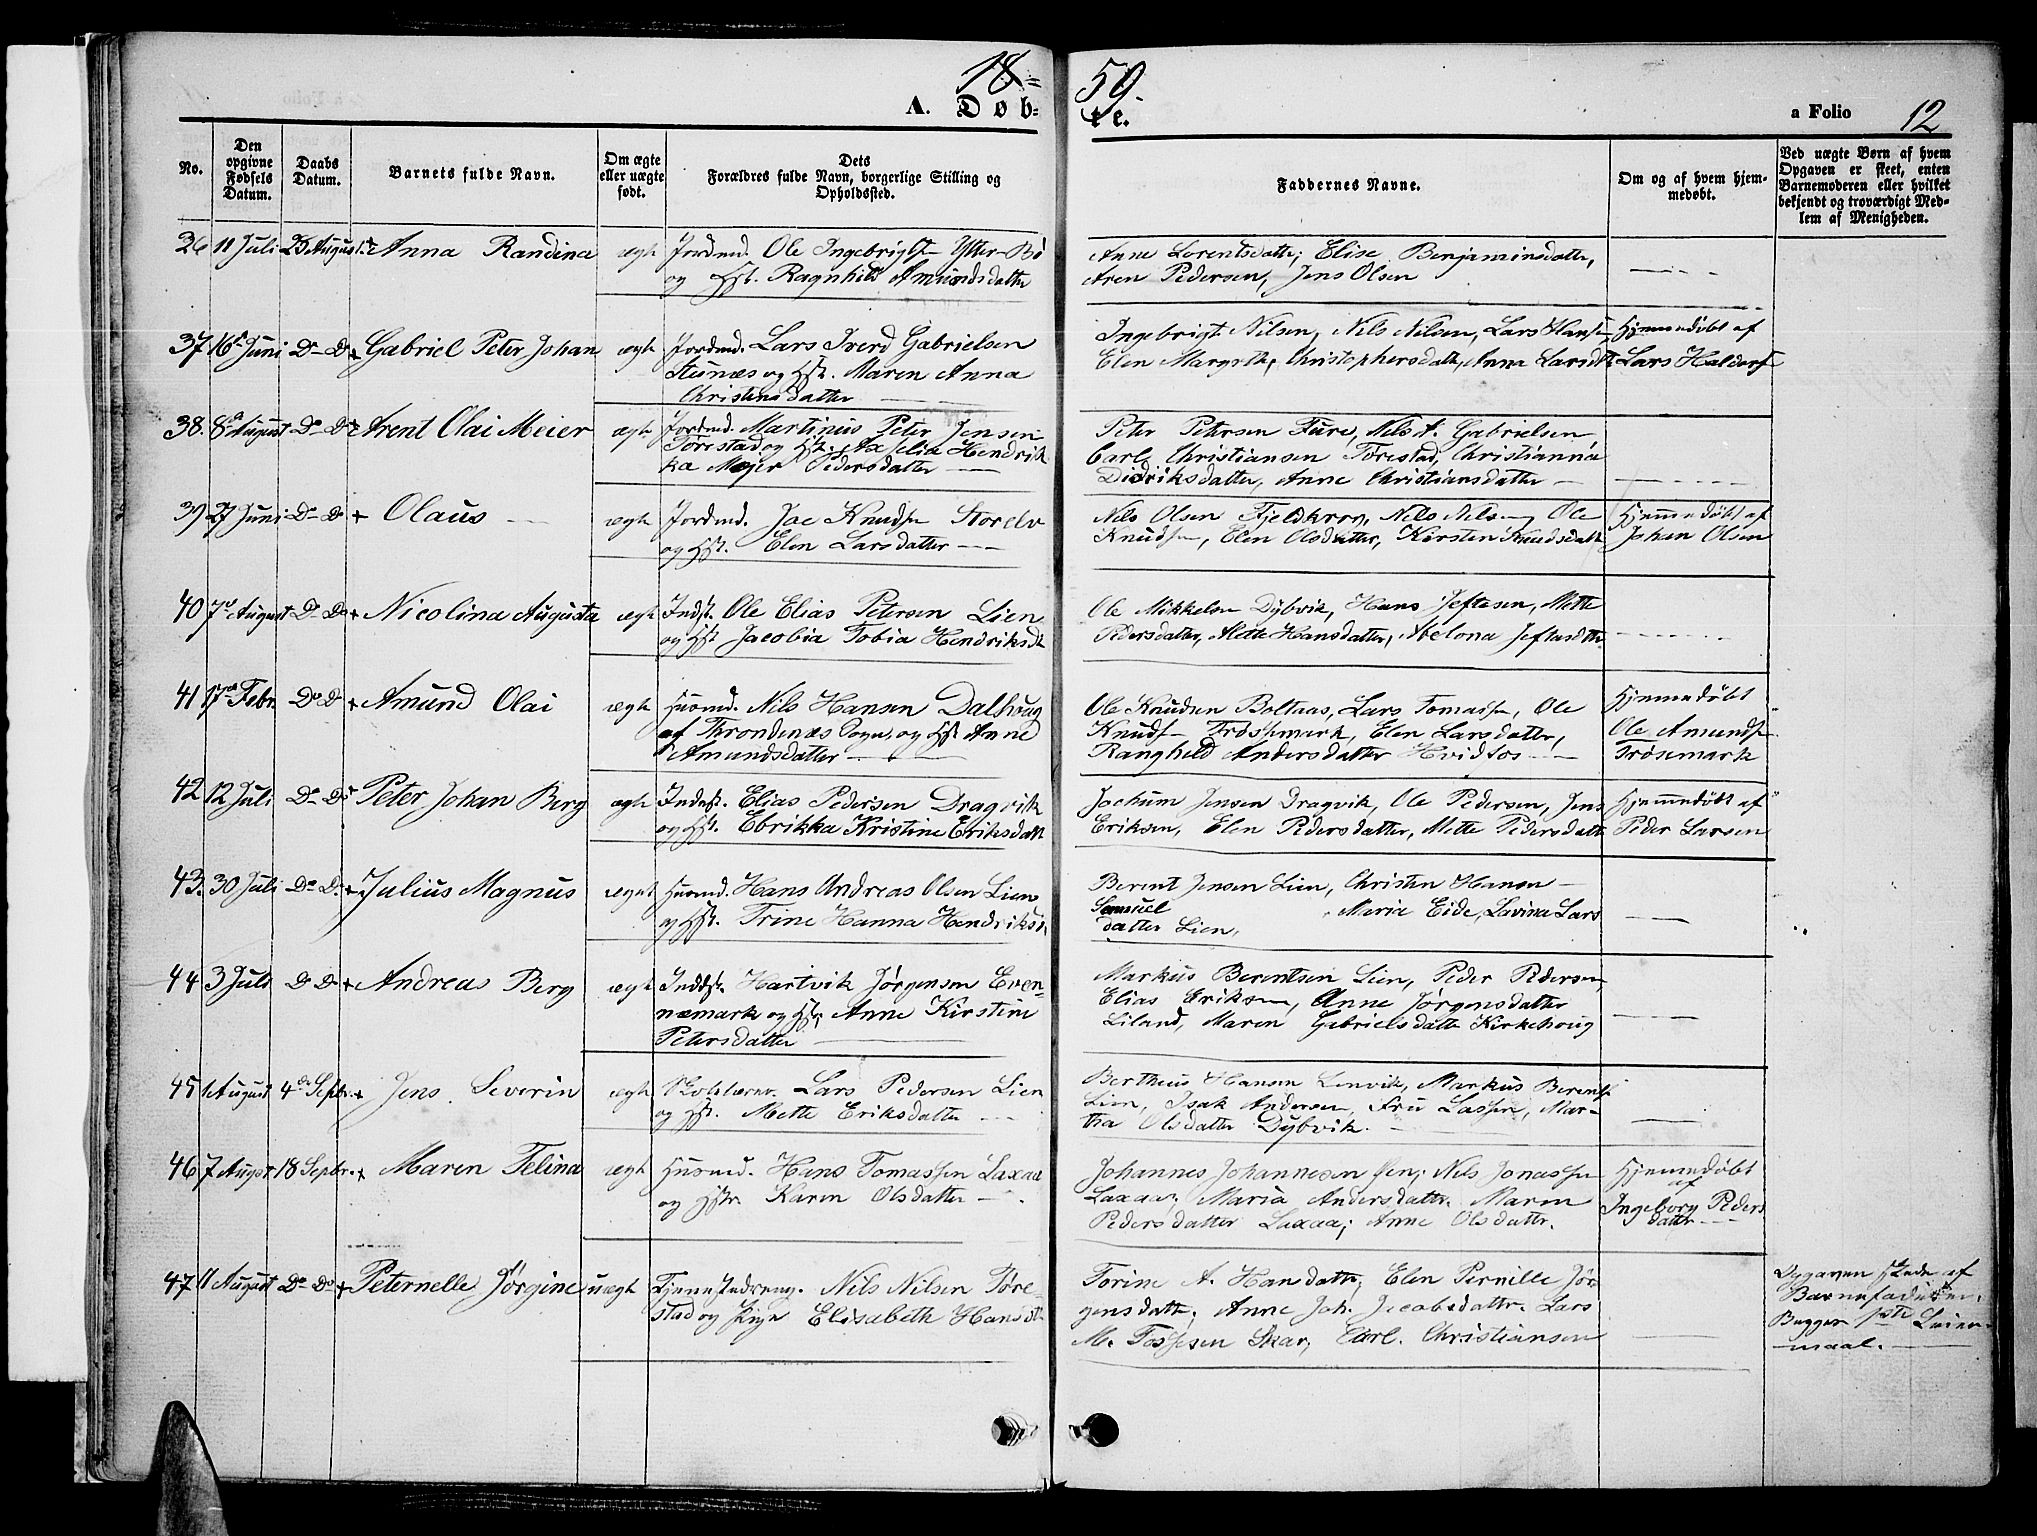 18=59.
A. Døbte.
a Folio 12
No.
Den opgivne Fødsels Datum.
Daabs Datum.
Barnets fulde Navn.
Om ægte eller uægte født.
Dets Forældres fulde Navn, borgerlige Stilling og Opholdssted.
Faddernes Navne.
Om og af hvem hjemmedøbt.
Ved uægte Børn af hvem Opgaven er skeet, enten Barnemoderen eller hvilket bekjendt og troværdigt Medlem af Menigheden.
36 11 Juli 25 August Anna Randina ægte Jordmd. Ole Ingebrigts. Ytter-Bö
og Hst. Ragnhild Amundsdatter
Anne Lorentsdatter; Elise Benjaminsdatter,
Aren Pedersen, Jens Olsen
37 16 Juni Do Do Gabriel Peter Johan ægte Jordmd. Lars Iverd Gabrielsen
Stusnæs og Hst. Maren Anna
Christensdatter
Ingebrigt Nilsen, Nils Nilsen, Lars Hansen
Elen Margrethe Christophersdatt, Anna Larsdtr
Hjemmedøbt af
Lars Haldors.
38. 8de August Do Do Arent Olai Meier ægte Jordmd. Martinus Peter Jensen
Torestad og Hst. Axelia Hendrik
ka Mejer Pedersdatter
Peter Petersen Fure, Nils A. Gabrielsen
Carl Christiansen Torestad, Christianna
Didriksdatter, Anne Christiansdatter
39 27 Juni Do Do Olaus ægte Jordmd. Jac Knudsen Storelv
og Hst. Elen Larsdatter
Nils Olsen Fjeldkrog, Nils Nilsen, Ole
Knudsen, Elen Olsdatter, Kirsten Knudsdatt
Hjemmedøbt af
Johan Olsen
40 7de August Do Do Nicolina Augusta ægte Indst. Ole Elias Petersen Lien
og Hst Jacobia Tobia Hendriksd
Ole Mikkelsen Dybvik, Hans Jeftesen, Mette
Pedersdatter, Mette Hansdatter, Abelona Jeftasdttr
41 17de Febr. Do Do Amund Olai ægte Husmd. Nils Hansen Dalhoug
af Throndenæs Sogn, og Hst Anne
Amundsdatter
Ole Knudsen Boltaas, Lars Tomassen, Ole
Knuds. Trøssemark, Elen Larsdatter,
Rangheld Andersdatter Hvidfos
Hjemmedøbt
Ole Amunds.
Trösemark
42 12 Juli Do Do Peter Johan Berg ægte Indst. Elias Pedersen Dragvik
og Hst. Ebrikka Kristine Eriksdatt
Jochum Jensen Dragvik, Ole Pedersen, Jens
Eriksen, Elen Pedersdatter, Mette Pedersdatt
Hjemmedøbt af
Peder Larsen
43. 30 Juli Do Do Julius Magnus ægte Husmd. Hans Andreas Olsen Lien
og Hst. Trine Hanna Hendriksd.
Berent Jensen Lien, Christen Hansen
Samuel Maria Eide, Lavina Lars
datter Lien,
44 3 Juli Do Do Andreas Berg ægte Indst. Hartvik Jørgensen Even-
nemark og Hst; Anne Kirstine
Petersdatter
Markus Berentsen Lien, Peder Pedersen,
Elias Eriksen, Anne Jørgensdatter
Liland, Maren Gabrielsdatter Kirkehoug
45 1 August 4de Septbr. Jens Severin ægte Skolelærer. Lars Pedersen Lien
og Hst. Mette Eriksdatter
Bertheus Hansen Lenvik, Markus Berents
Lien, Isak Andersen, Fru Lassen, Mar-
tha Olsdatter Dybvik.
46 7 August 18 Septbr. Maren Felina ægte Husmd. Hans Tomassen Laxaa
og Hstr. Karen Olsdatter
Johannes Johannesen Øen; Nils Jonassen
Laxaa; Maria Andersdattr. Maren
Pedersdatter Laxaa; Anne Olsdattr.
Hjemmedøbt
af
Ingeborg Peders
datter
47 11 August Do Do Peternelle Jörgine uægte Tjenestedreng. Nils Nilsen Tøre-
stad og Pige Elisabeth Hansdt
Torine A. Hansdatter; Elen Pernille Jør
gensdatt; Anne Joh. Jacobsdattr. Lars
M. Tossesen Skar, Carl. Christiansen
Opgaven skede af
Barnefaderen.
Begges 1ste Leier-
maal.